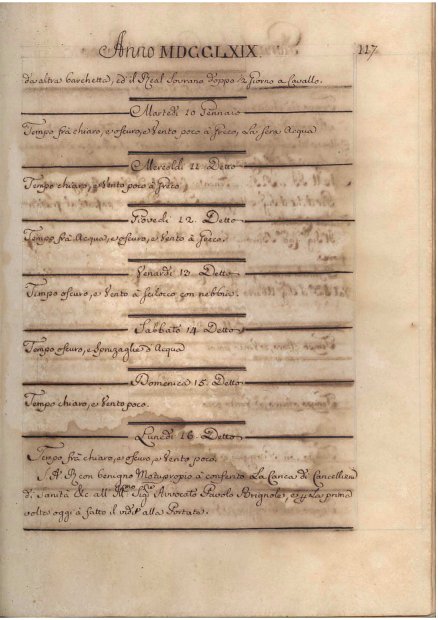 Anno MDCCLXIX.
117
da altra barchetta, ed il Real Sovrano doppo 2 Giorno a Cavallo.
Martedì 10 Gennaio
Tempo frà chiaro, e oscuro, e Vento poco à Greco, a La sera Acqua
Mercoldì 11. Detto
Tempo chiaro, e Vento poco à Greco
Giovedì 12. Detto
Tempo frà Acqua, e oscuro, e Vento à Greco.
Venardì 13 Detto
Tempo oscuro, e Vento à Scilocco con nebbia.
Sabbato 14 Detto
Tempo oscuro, e Spruzaglie d Acqua
Domenica 15. Detto
Tempo chiaro, e Vento poco.
Lunedì 16. Detto
Tempo frà chiaro, e oscuro, e Vento poco.
S. A. R con benugno Motuproprio à conferito La Carica di Cancelliere
di Sanità &c all' Sig Avvocato Pavolo Brignole, e La prima
volta oggi à fatto il vidit alla Portata.